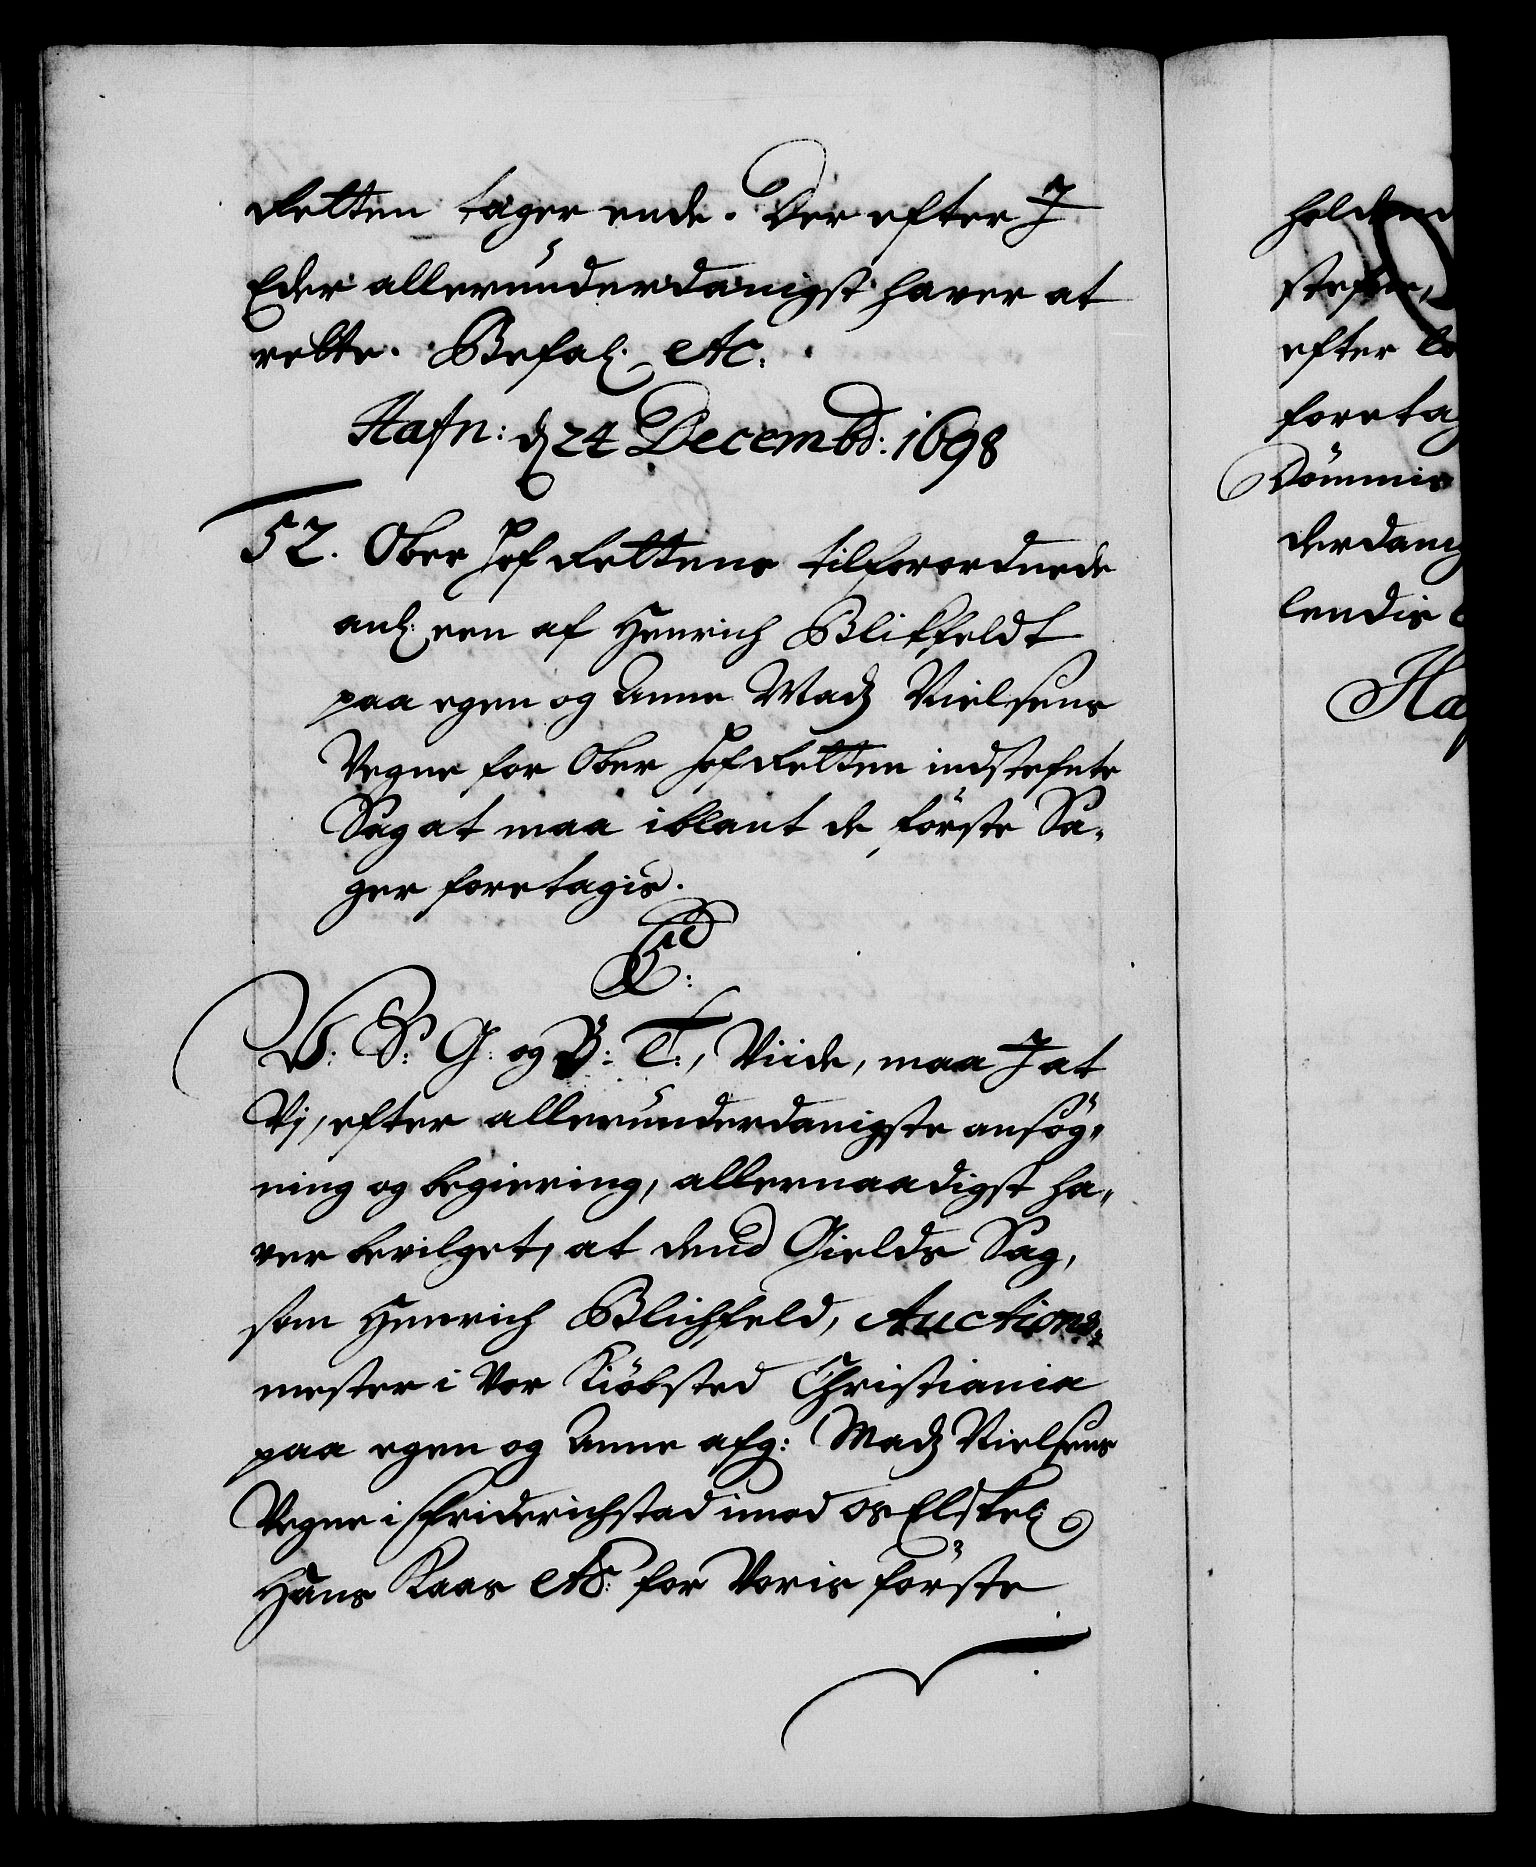 Retten tager ende. Der efter I
Eder allerunderdanigst haver at
rette. Befal. etc:
Hafn: d 24 Decembr: 1698
52. Ober Hof Rettens tilforordnede
anl: een af Henrich Blikfeldt
paa egen og Anne Madz Nielsens
Vegne for Ober Hof Retten indstefnte
Sag at maa iblant de förste Sa-
ger foretagis.
C5
V: S: G: og B: T:, Viide, maa I at
Vj, efter allerunderdanigste ansög-
ning og begiering, allernaadigst ha-
ver bevilget, at dend Gields Sag,
som Henrich Blichfeld, Auctions-
mester i Vor Kiöbsted Christiania
paa egen og Anne afg: Madz Nielsens
Vegne i Friderichstad imod os Elskel:
Hans Kaas etc: for Voris förste
holdend
stefne,
efter be
foretag
Dömmis
derdanig
lendis
Haf